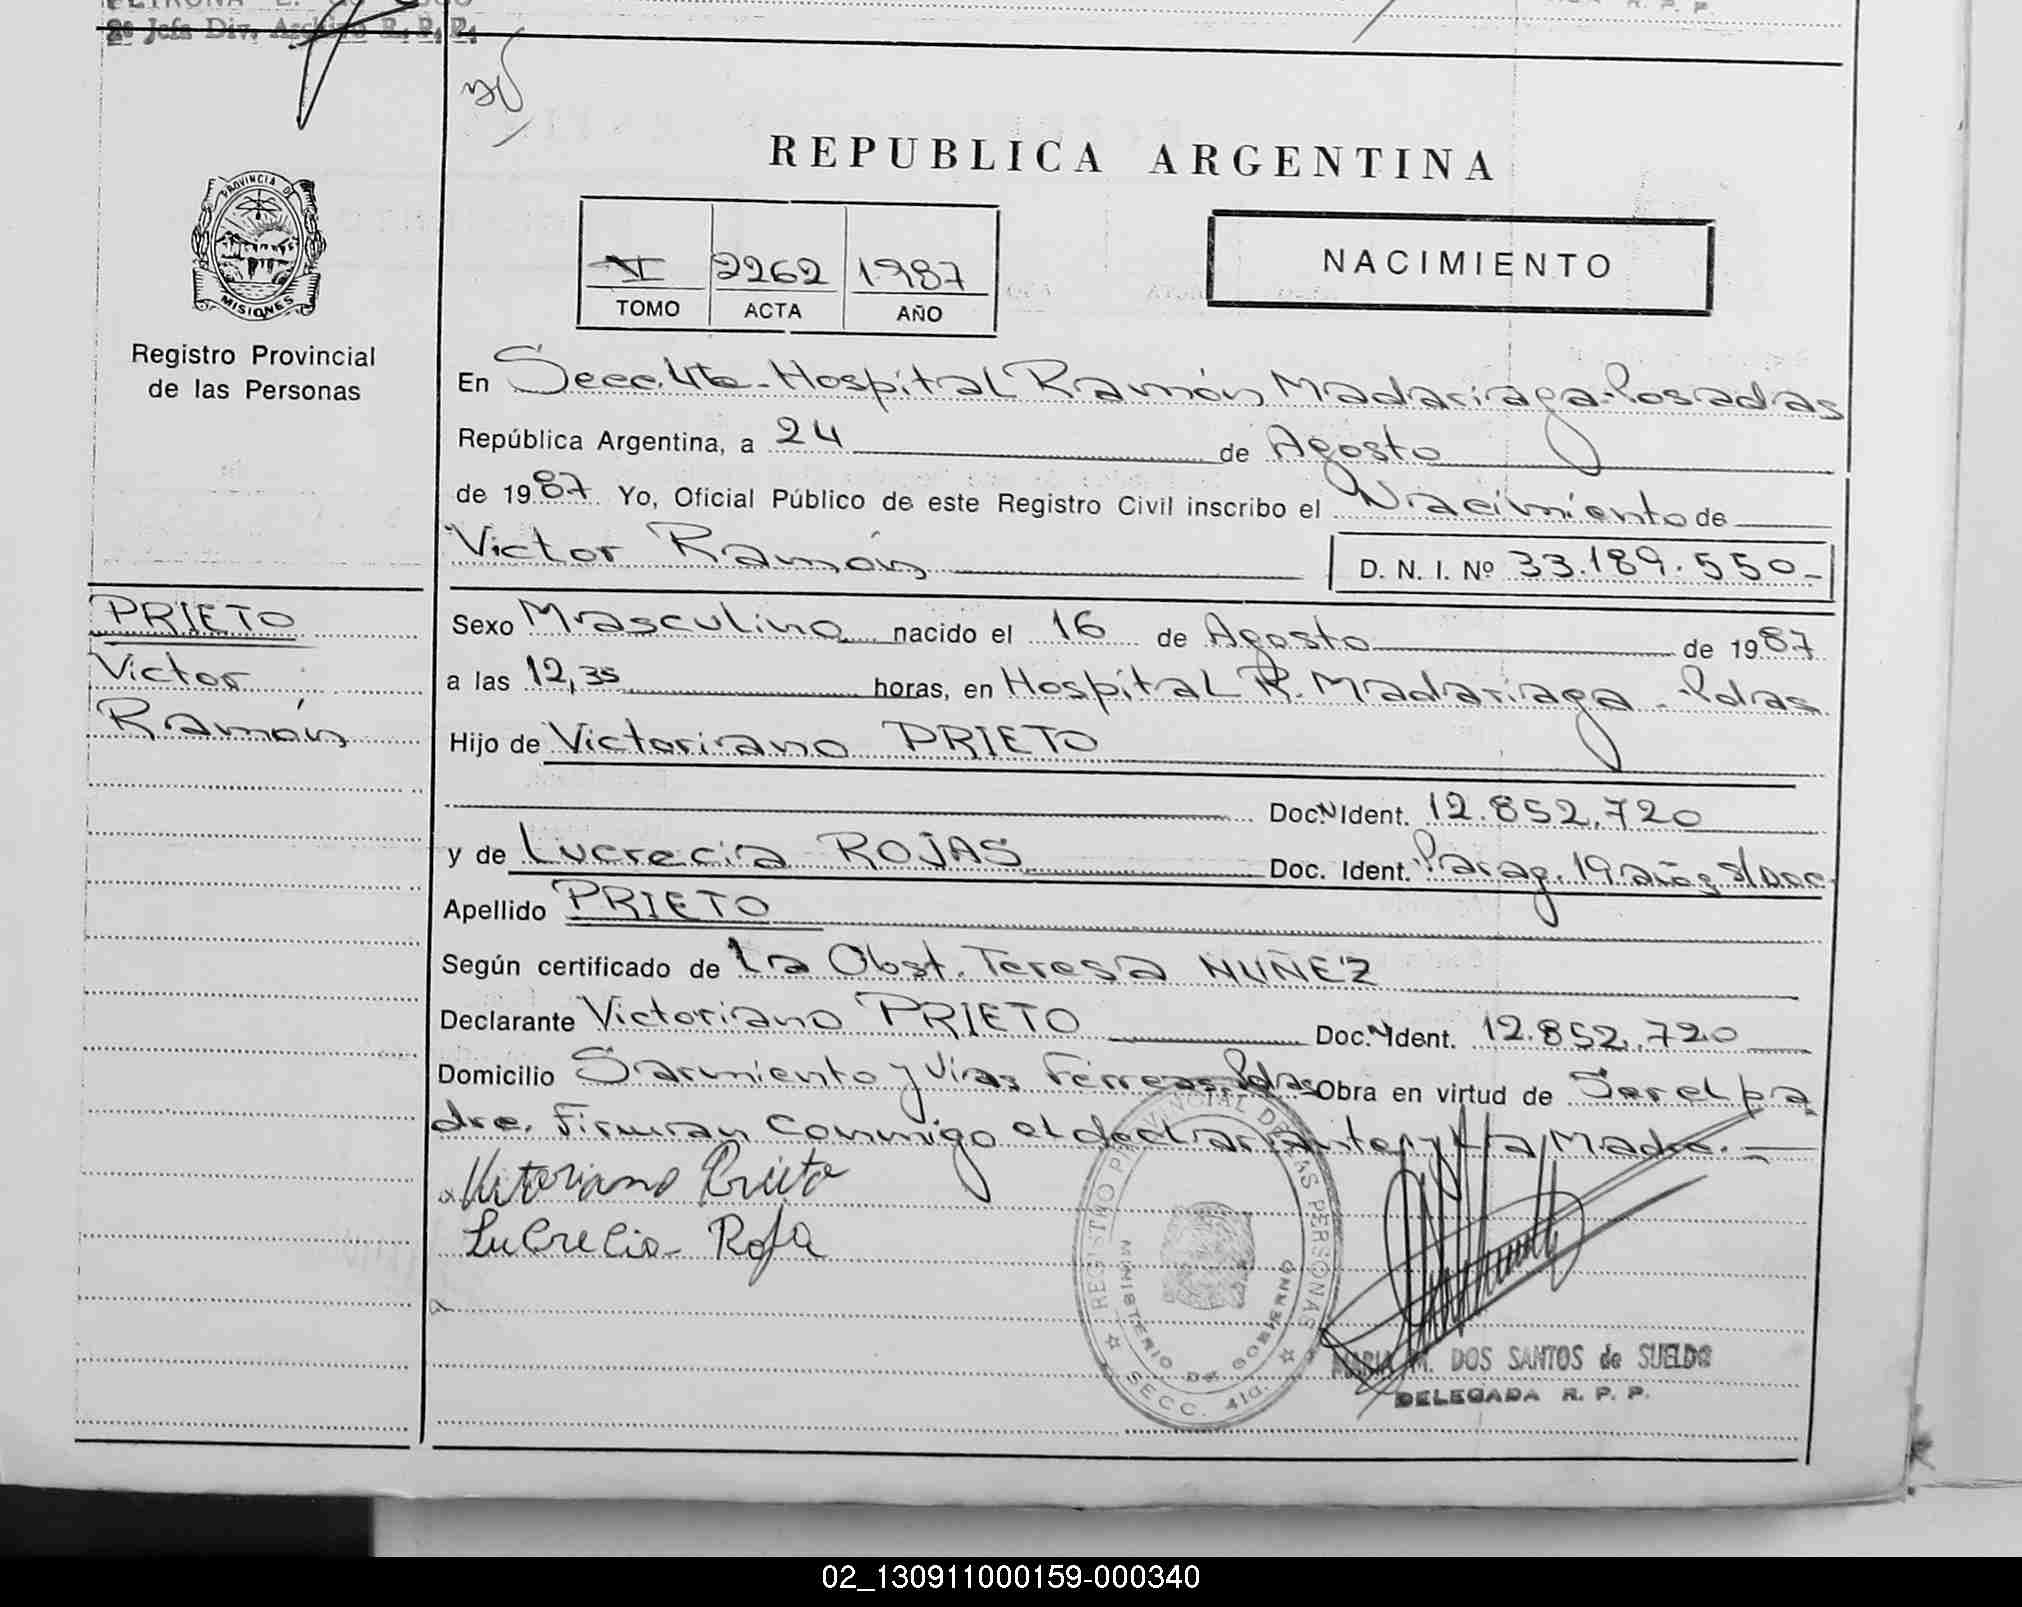 2º Jefa Div. Archivo R. P. P.
PROVINCIA DE
MISIONES
Registro Provincial
de las Personas
REPUBLICA ARGENTINA
2262 1987
TOMO ACTA AÑO
NACIMIENTO
En Secc. 4ta - Hospital Ramón Madariaga - Posadas
República Argentina, a 24 de Agosto
de 1987 Yo, Oficial Público de este Registro Civil inscribo el Nacimiento de
Victor Ramón D. N. I. Nº 33.189.550-
PRIETO
Victor
Ramón
Sexo Masculino nacido el 16 de Agosto de 1987
a las 12,35 horas, en Hospital R. Madariaga - Pdas
Hijo de Victoriano PRIETO
Doc. N Ident. 12.852.720
y de Lucrecia ROJAS Doc. Ident. Parag. 19 años s/Doc.
Apellido PRIETO
Según certificado de La Obst. Teresa NUÑEZ
Declarante Victoriano PRIETO Doc. N Ident. 12.852.720
Domicilio Sarmiento y Vias Férreas, Pdas Obra en virtud de Ser el pa
dre. Firman conmigo el declarante y la Madre. —
Vitoriano Prieto
Lucrecia Roja
REGISTRO PROVINCIAL DE LAS PERSONAS
MINISTERIO DE GOBIERNO
SECC. 4ta.
MARIA M. DOS SANTOS de SUELDO
DELEGADA R. P. P.
02_130911000159-000340